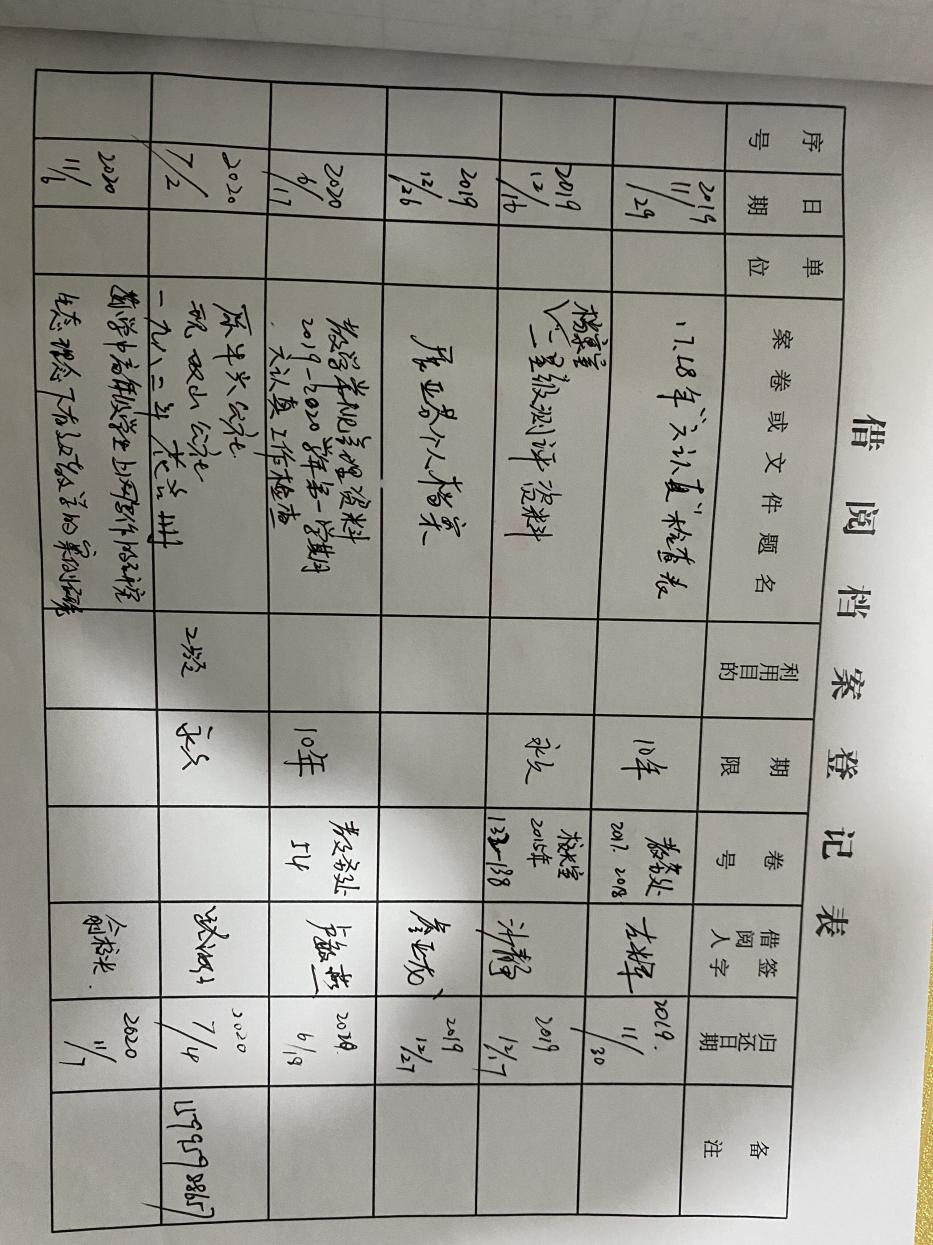 借阅档案登记表
序号 日期 单位 案卷或文件题名 利用目的 期限 卷号 借阅人签字 归还日期 备注
2019 11/29 17.18年“六认真”检查表 10年 教务处 2017.2018 2019. 11/30
2019 12/16 档案室 一星级测评资料 永久 校长室 2015年 133-138 2019 12/17
2019 12/26 个人档案 2019 12/27
2020 6/17 教学常规管理资料
2019-2020学年第一学期
六认真工作检查 10年 教务处 54 2020. 6/18
2020 7/2 公社
现双山公社
一九八二年 永久 2020 7/4 15995908657
2020 11/6 数学中高年级学生
生态理念下有效教学的案例 2020 11/7